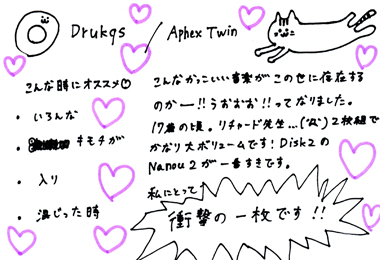 Drukqs / Aphex Twin
こんな時にオススメ
・いろんな
・キモチが
・入り
・混じった時
こんなかっこいい音楽がこの世に存在する
のかー!!うおぉお!!ってなりました。
17歳の頃。リチャード先生…('Д')2枚組で
かなり大ボリュームです!Disk2の
Nanou2が一番すきです。
私にとって
衝撃の一枚です!!